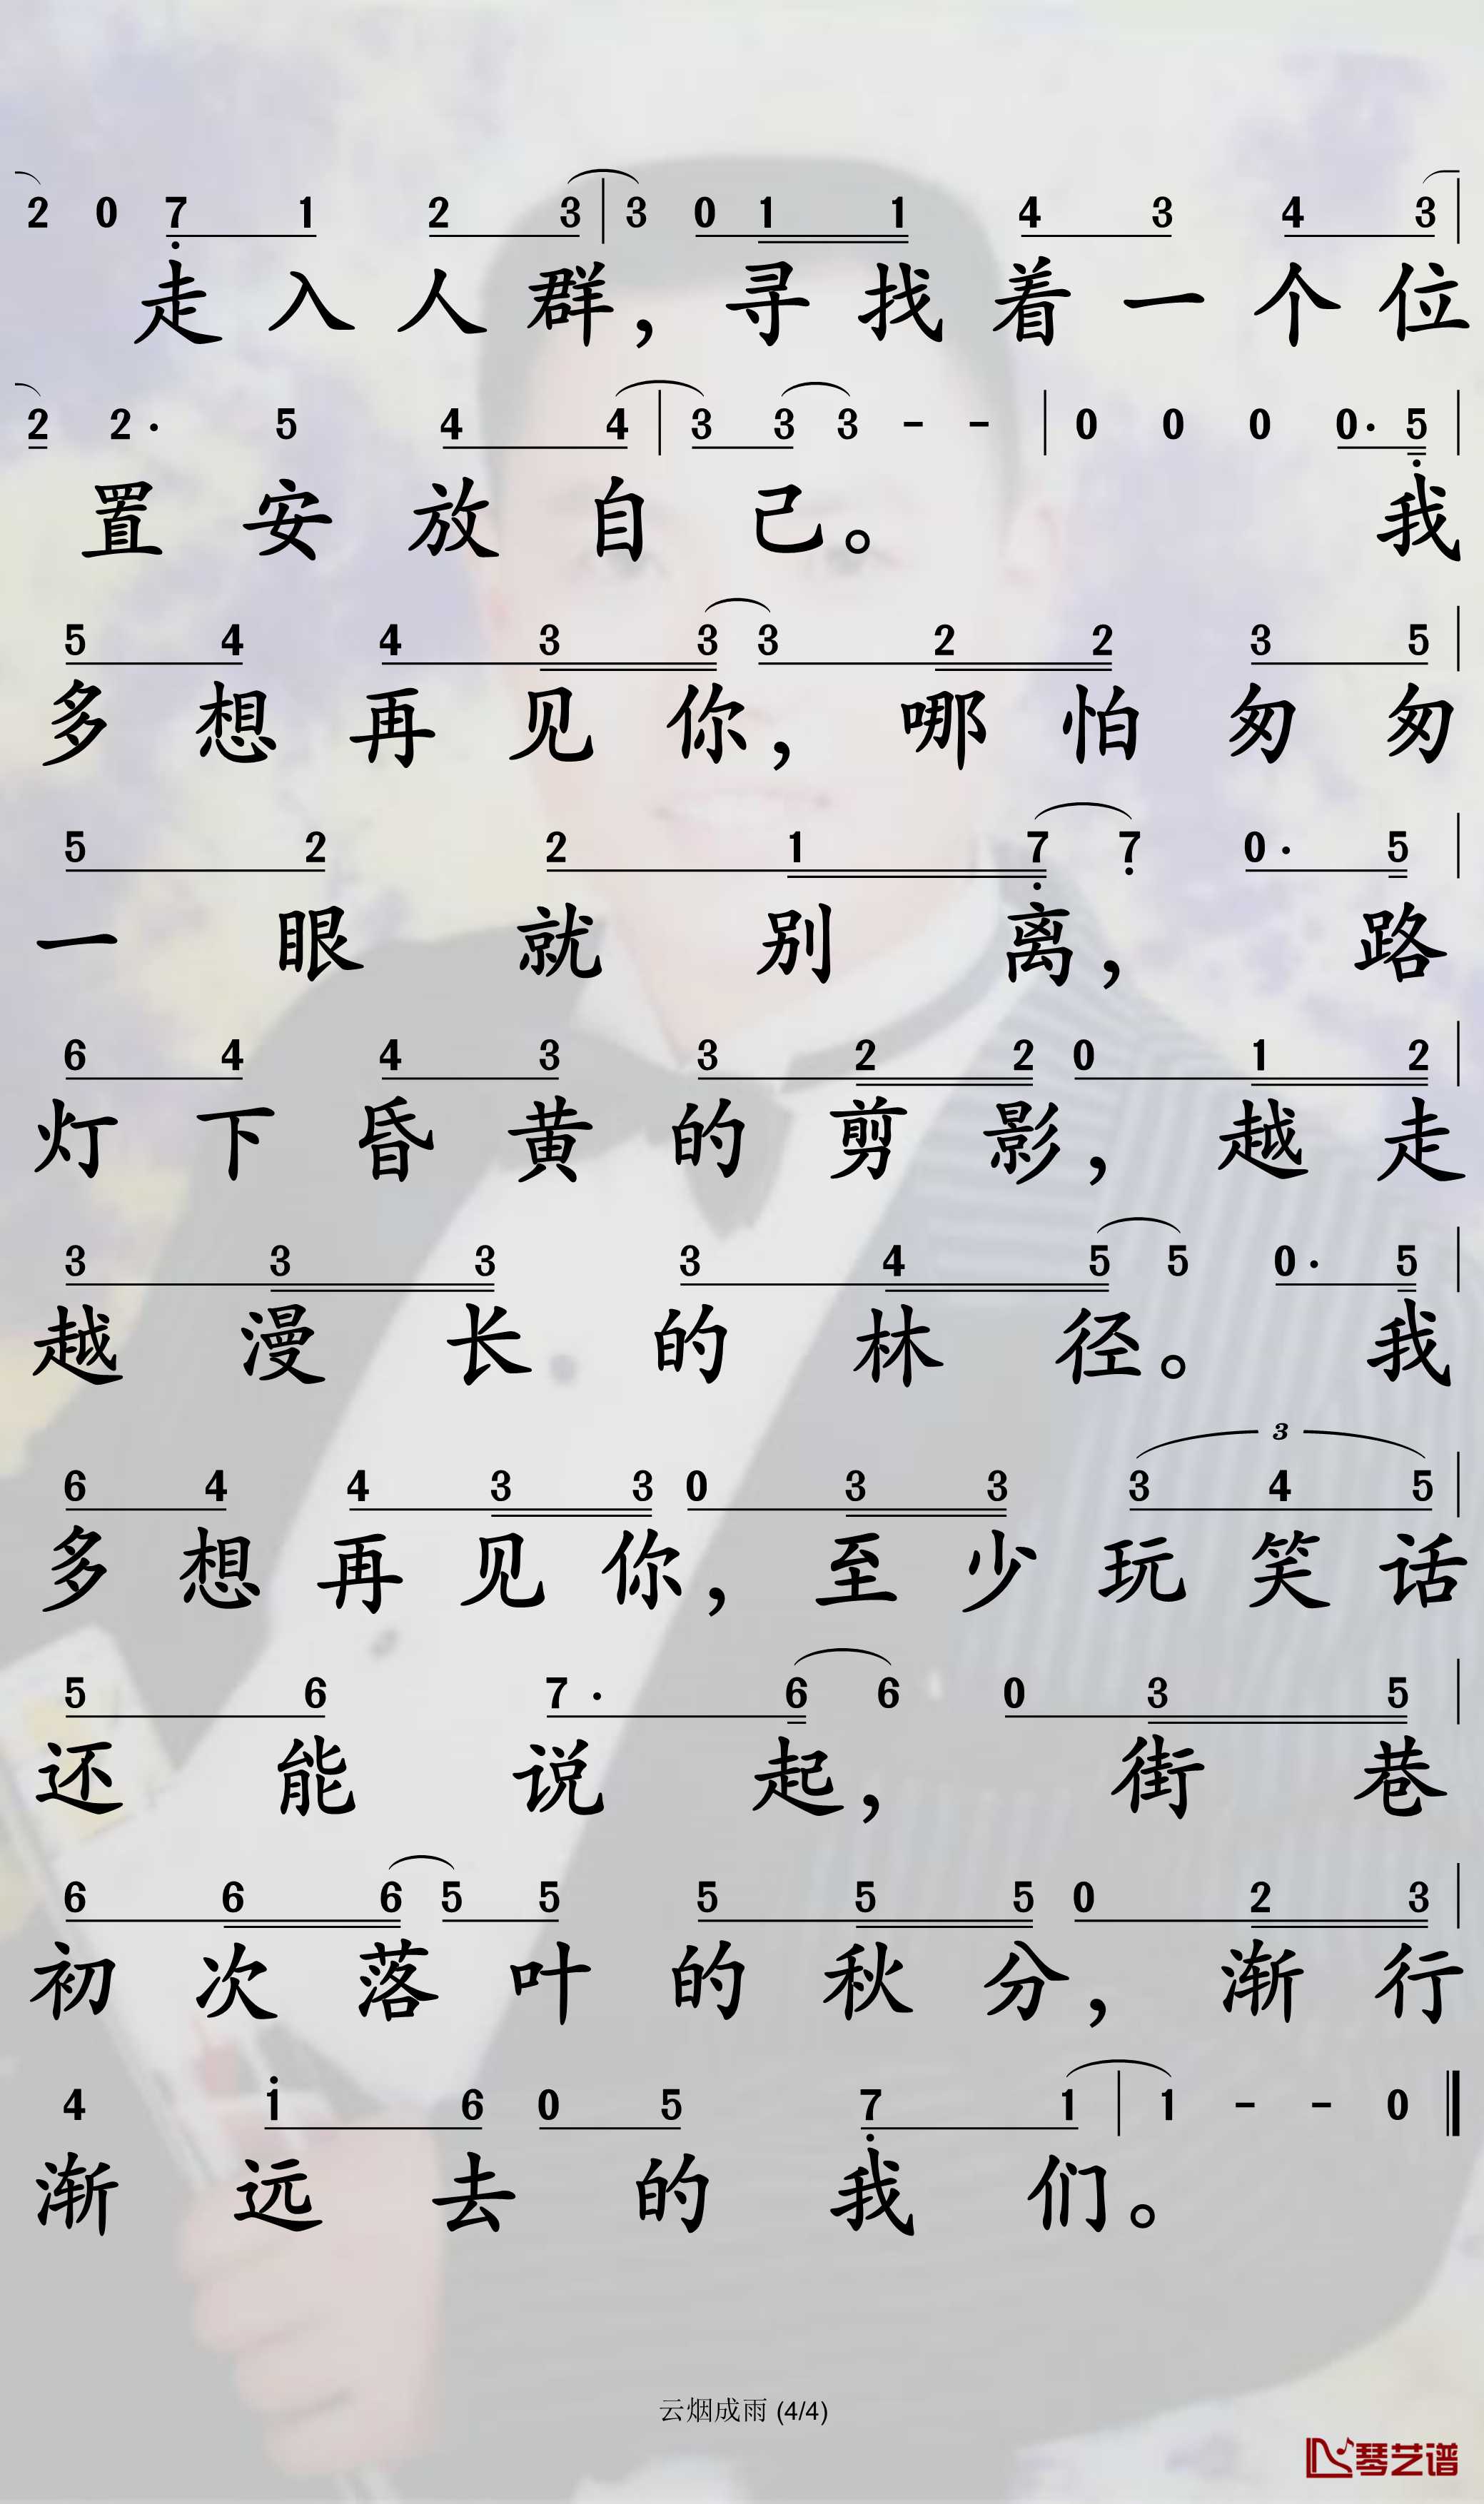 2 0 7 1 2 3 | 3 0 1 1 4 3 4 3 |
走入人群，寻找着一个位
2 2· 5 4 4 | 3 3 3 - - | 0 0 0 0· 5 |
置安放自己。我
5 4 4 3 3 3 2 2 3 5 |
多想再见你，哪怕匆匆
5 2 2 1 7 7 0· 5 |
一眼就别离，路
6 4 4 3 3 2 2 0 1 2 |
灯下昏黄的剪影，越走
3 3 3 3 4 5 5 0· 5 |
越漫长的林径。我
3
6 4 4 3 3 0 3 3 3 4 5 |
多想再见你，至少玩笑话
5 6 7· 6 6 0 3 5 |
还能说起，街巷
6 6 6 5 5 5 5 5 0 2 3 |
初次落叶的秋分，渐行
4 1 6 0 5 7 1 | 1 - - 0 ‖
渐远去的我们。
云烟成雨 (4/4)
琴艺谱